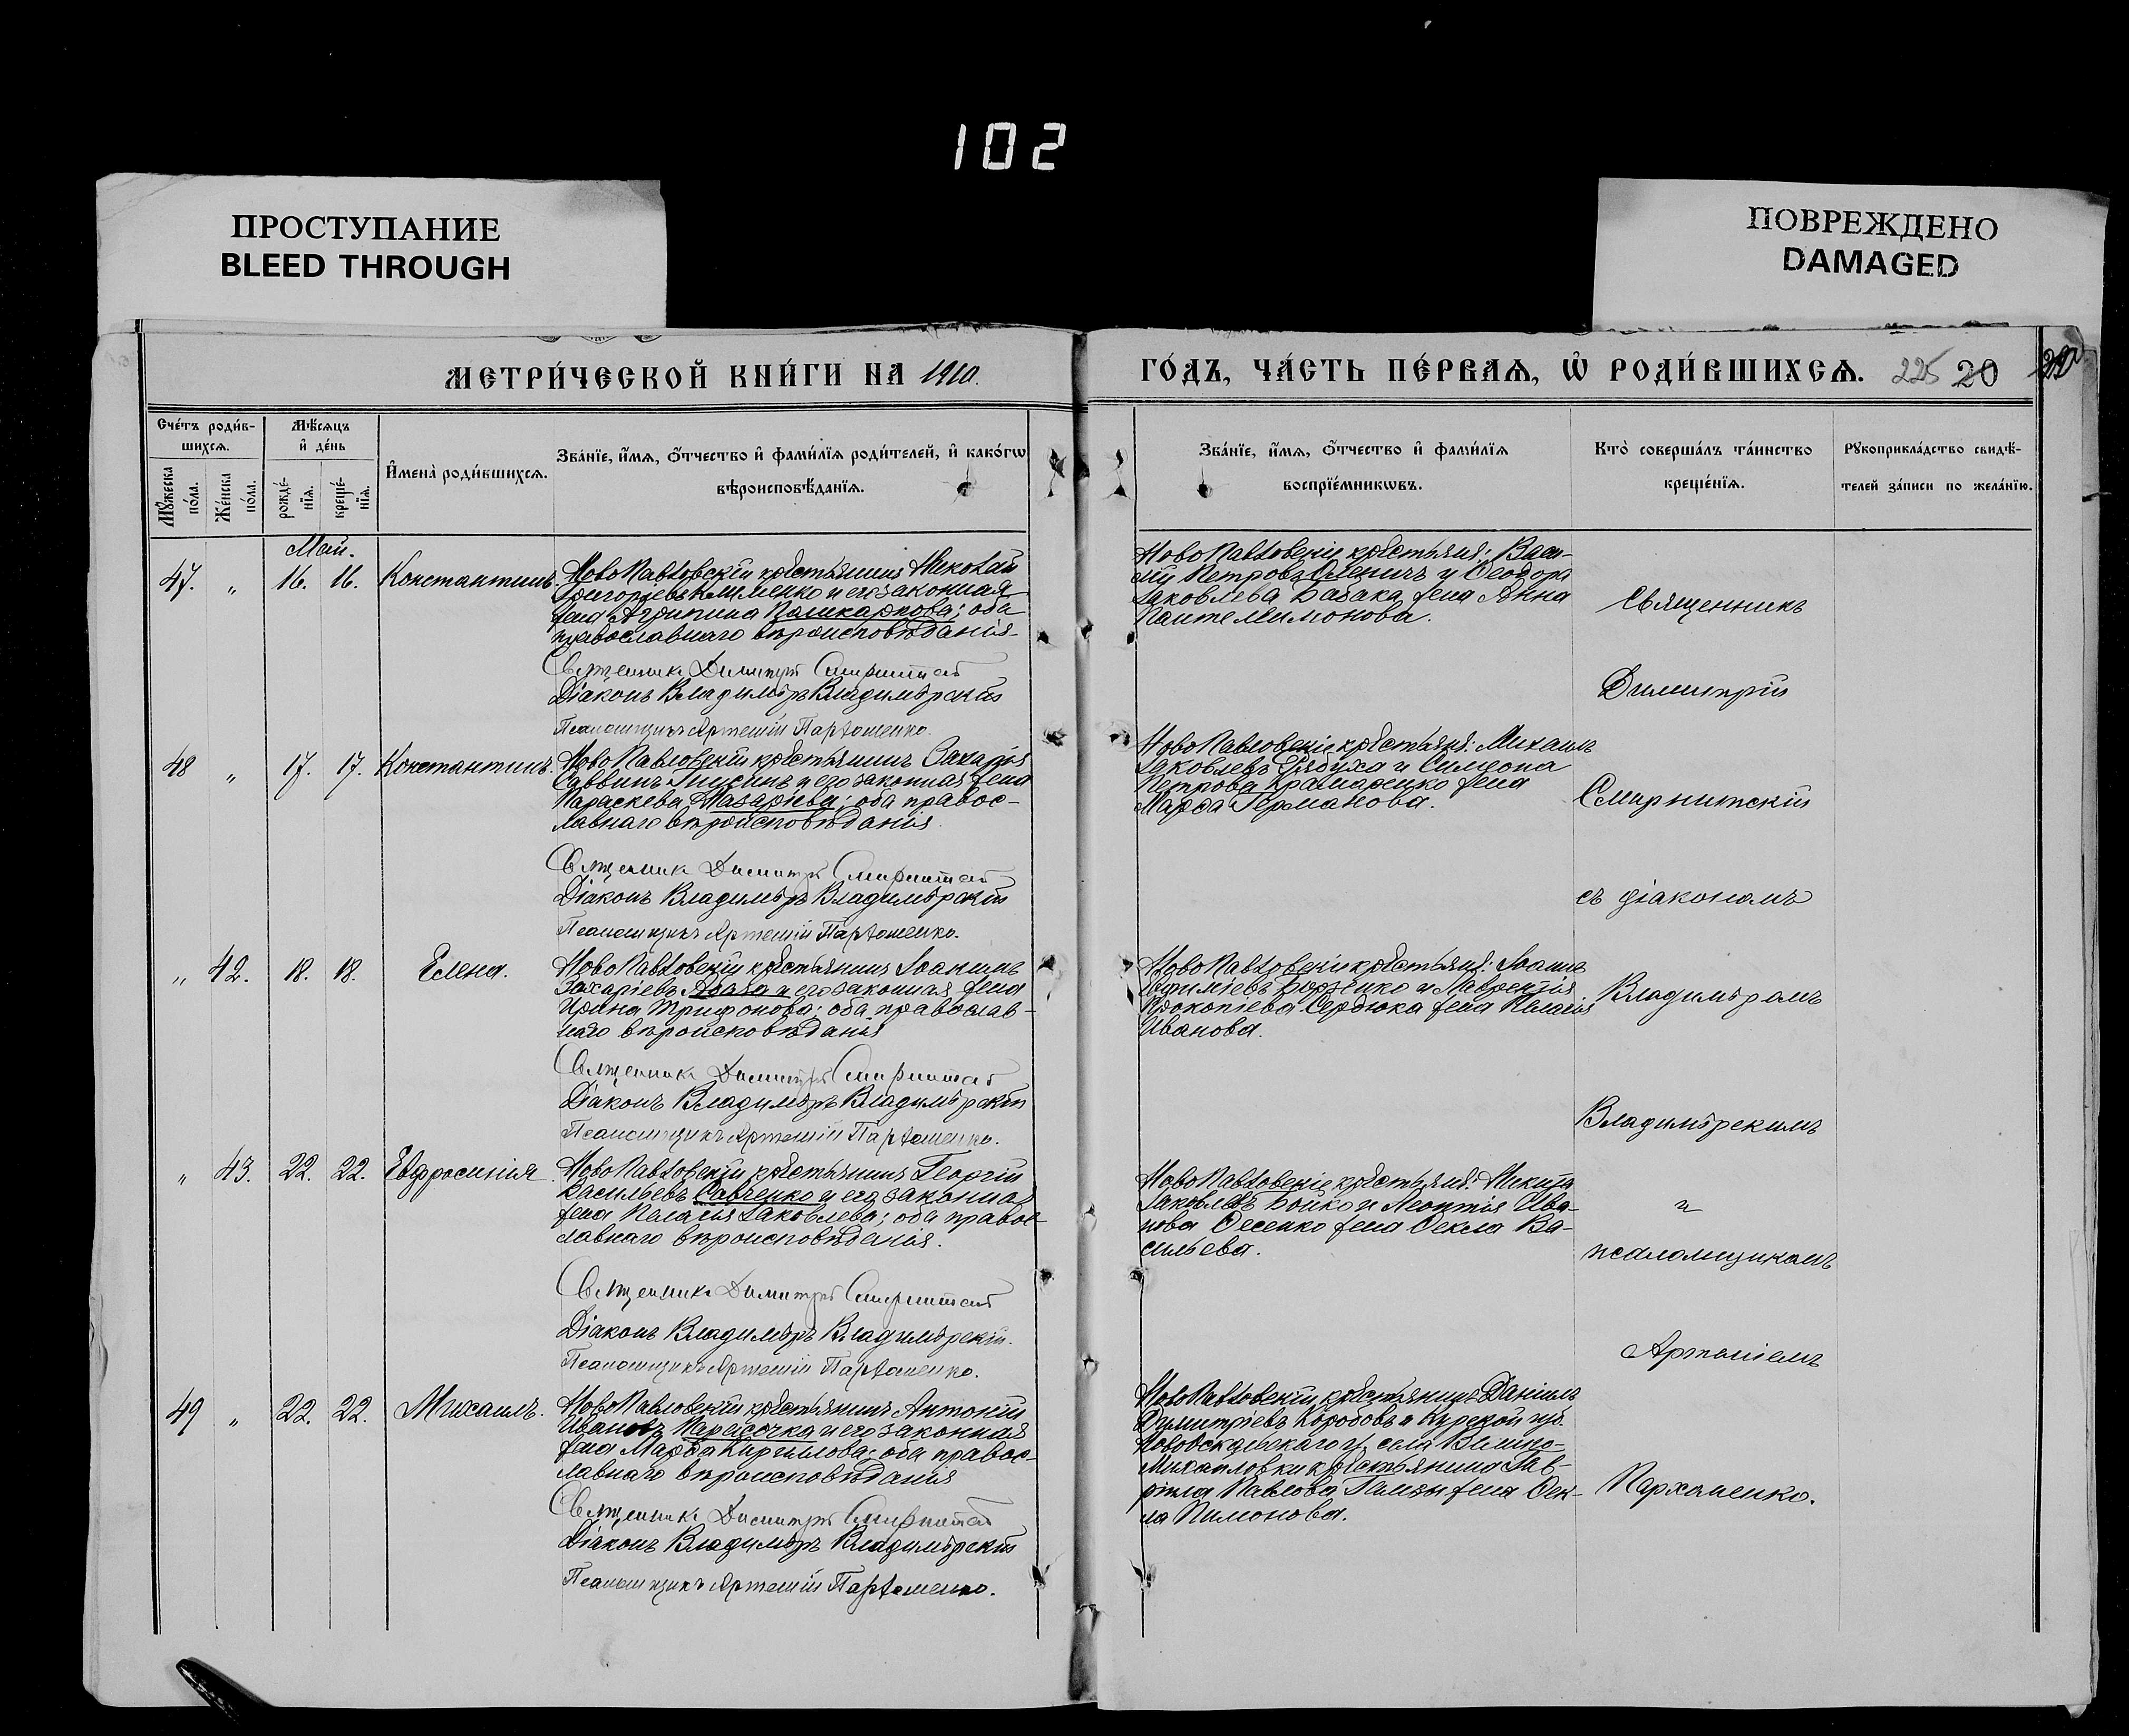 102
ПРОСТУПАНИЕ
BLEED THROUGH
ПОВРЕЖДЕНО
DAMAGED
МЕТРИ́ЧЕСКОЙ КНИ́ГИ НА 1910.
ГО́ДЪ, ЧА́СТЬ ПЕ́РВАѦ, Ѡ҆ РОДИ́ВШИХСѦ. 225 20
Сче́тъ роди́в-
шихсѧ.
Мѣ́сѧцъ
и҆ де́нь
Мꙋ́жеска по́ла.
Же́нска по́ла.
рожде́-нїѧ.
креще́-нїѧ.
И҆мена̀ роди́вшихсѧ.
Зва́нїе, и҆́мѧ, ѻ҆́тчество и҆ фами́лїѧ роди́телей, и҆ како́гѡ
вѣроисповѣ́данїѧ.
Зва́нїе, и҆́мѧ, ѻ҆́тчество и҆ фами́лїѧ
воспрїе́мникѡвъ.
Кто̀ соверша́лъ та́инство
креще́нїѧ.
Рꙋкоприкла́дство свидѣ́-
телей за́писи по жела́нїю.
Май.
47. „ 16. 16. Константинъ.
НовоПавловскій крестьянинъ Николай
Григорьевъ Клименко и его законная
жена Агрипина Поликарпова; оба
православнаго вѣроисповѣданія.
Священникъ Димитрій Смирнитскій
Діаконъ Владиміръ Владимірскій
Псаломщикъ Артемій Пархоменко.
НовоПавловскіе крестьяне: Васи-
лій Петровъ и Ѳеодора
Іаковлева жена Анна
Пантелимонова.
Священникъ
Димитрій
48 „ 17. 17. Константинъ.
НовоПавловскій крестьянинъ Захарія
Саввинъ и его законная жена
Параскева Назаріева; оба правос-
лавнаго вѣроисповѣданія.
Священникъ Димитрій Смирнитскій
Діаконъ Владиміръ Владимірскій
Псаломщикъ Артемій Пархоменко.
НовоПавловскіе крестьяне: Михаилъ
Іаковлевъ и Симеона
Петрова Крамаренко жена
Марѳа Германова.
Смирнитскій
съ діакономъ
„ 42. 18. 18. Елена.
НовоПавловскій крестьянинъ Іоакимъ
Захаріевъ и его законная жена
Ирина Трифонова; оба православ-
наго вѣроисповѣданія
Священникъ Димитрій Смирнитскій
Діаконъ Владиміръ Владимірскій
Псаломщикъ Артемій Пархоменко.
НовоПавловскіе крестьяне: Іоаннъ
и Лаврентія
Прокопіева Сердюка жена Пелагія
Иванова.
Владиміромъ
Владимірскимъ
„ 43. 22. 22. Евфросинія.
НовоПавловскій крестьянинъ Георгій
Васильевъ Савченко и его законная
жена Пелагія Іаковлева; оба правос-
лавнаго вѣроисповѣданія.
Священникъ Димитрій Смирнитскій
Діаконъ Владиміръ Владимірскій.
Псаломщикъ Артемій Пархоменко.
НовоПавловскіе крестьяне: Никита
Іаковлевъ Бойко и Леонтія Ива-
нова жена Ѳекла Ва-
сильева.
и
псаломщикомъ
Артеміемъ
49 „ 22. 22. Михаилъ.
НовоПавловскій крестьянинъ Антоній
Ивановъ Парасочка и его законная
жена Марѳа Кириллова; оба правос-
лавнаго вѣроисповѣданія
Священникъ Димитрій Смирнитскій
Діаконъ Владиміръ Владимірскій
Псаломщикъ Артемій Пархоменко.
НовоПавловскій крестьянинъ Даніилъ
Димитріевъ Коробовъ и Курской губ.
Новооскольскаго у. села
Михайловки крестьянина Гав-
ріила Павлова жена Ѳек-
ла Пимонова.
Пархоменко.